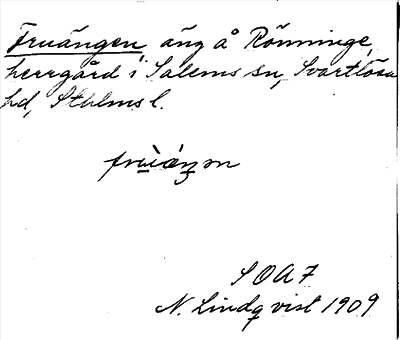 Fruängen äng å Rönninge,
herrgård i Salems sn, Svartlösa
hd, Sthlms l.
SOAF
N. Lindqvist 1909